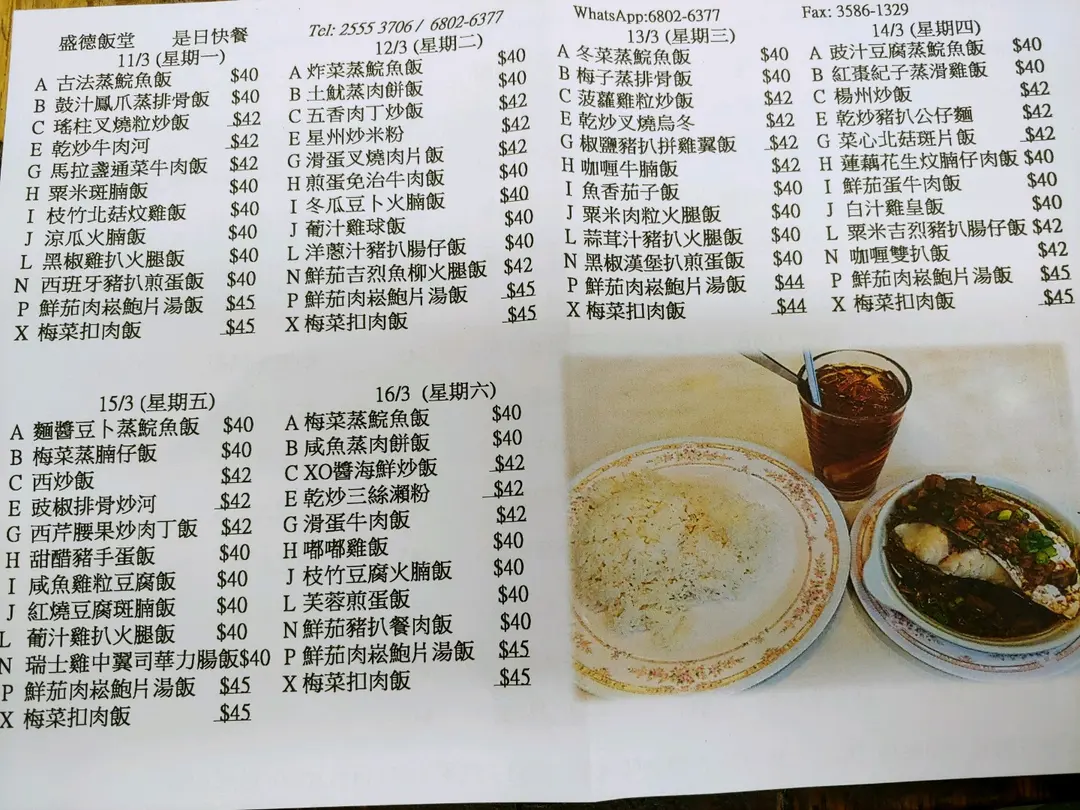 盛德飯堂 是日快餐
Tel: 2555 3706 / 6802-6377
WhatsApp:6802-6377
Fax: 3586-1329
11/3 (星期一)
A 古法蒸鯇魚飯 $40
B 鼓汁鳳爪蒸排骨飯 $40
C 瑤柱叉燒粒炒飯 $42
E 乾炒牛肉河 $42
G 馬拉盞通菜牛肉飯 $42
H 粟米斑腩飯 $40
I 枝竹北菇炆雞飯 $40
J 涼瓜火腩飯 $40
L 黑椒雞扒火腿飯 $40
N 西班牙豬扒煎蛋飯 $40
P 鮮茄肉崧鮑片湯飯 $45
X 梅菜扣肉飯 $45
12/3 (星期二)
A 炸菜蒸鯇魚飯 $40
B 土魷蒸肉餅飯 $40
C 五香肉丁炒飯 $42
E 星州炒米粉 $42
G 滑蛋叉燒肉片飯 $42
H 煎蛋免治牛肉飯 $40
I 冬瓜豆卜火腩飯 $40
J 葡汁雞球飯 $40
L 洋蔥汁豬扒腸仔飯 $40
N 鮮茄吉烈魚柳火腿飯 $42
P 鮮茄肉崧鮑片湯飯 $45
X 梅菜扣肉飯 $45
13/3 (星期三)
A 冬菜蒸鯇魚飯 $40
B 梅子蒸排骨飯 $40
C 菠蘿雞粒炒飯 $42
E 乾炒叉燒烏冬 $42
G 椒鹽豬扒拼雞翼飯 $42
H 咖喱牛腩飯 $42
I 魚香茄子飯 $40
J 粟米肉粒火腿飯 $40
L 蒜茸汁豬扒火腿飯 $40
N 黑椒漢堡扒煎蛋飯 $40
P 鮮茄肉崧鮑片湯飯 $44
X 梅菜扣肉飯 $44
14/3 (星期四)
A 豉汁豆腐蒸鯇魚飯 $40
B 紅棗紀子蒸滑雞飯 $40
C 楊州炒飯 $42
E 乾炒豬扒公仔麵 $42
G 菜心北菇斑片飯 $42
H 蓮藕花生炆腩仔肉飯 $40
I 鮮茄蛋牛肉飯 $40
J 白汁雞皇飯 $40
L 粟米吉烈豬扒腸仔飯 $42
N 咖喱雙扒飯 $42
P 鮮茄肉崧鮑片湯飯 $45
X 梅菜扣肉飯 $45
15/3 (星期五)
A 麵醬豆卜蒸鯇魚飯 $40
B 梅菜蒸腩仔飯 $40
C 西炒飯 $42
E 豉椒排骨炒河 $42
G 西芹腰果炒肉丁飯 $42
H 甜醋豬手蛋飯 $40
I 咸魚雞粒豆腐飯 $40
J 紅燒豆腐斑腩飯 $40
L 葡汁雞扒火腿飯 $40
N 瑞士雞中翼司華力腸飯$40
P 鮮茄肉崧鮑片湯飯 $45
X 梅菜扣肉飯 $45
16/3 (星期六)
A 梅菜蒸鯇魚飯 $40
B 咸魚蒸肉餅飯 $40
C XO醬海鮮炒飯 $42
E 乾炒三絲瀨粉 $42
G 滑蛋牛肉飯 $42
H 嘟嘟雞飯 $40
J 枝竹豆腐火腩飯 $40
L 芙蓉煎蛋飯 $40
N 鮮茄豬扒餐肉飯 $40
P 鮮茄肉崧鮑片湯飯 $45
X 梅菜扣肉飯 $45